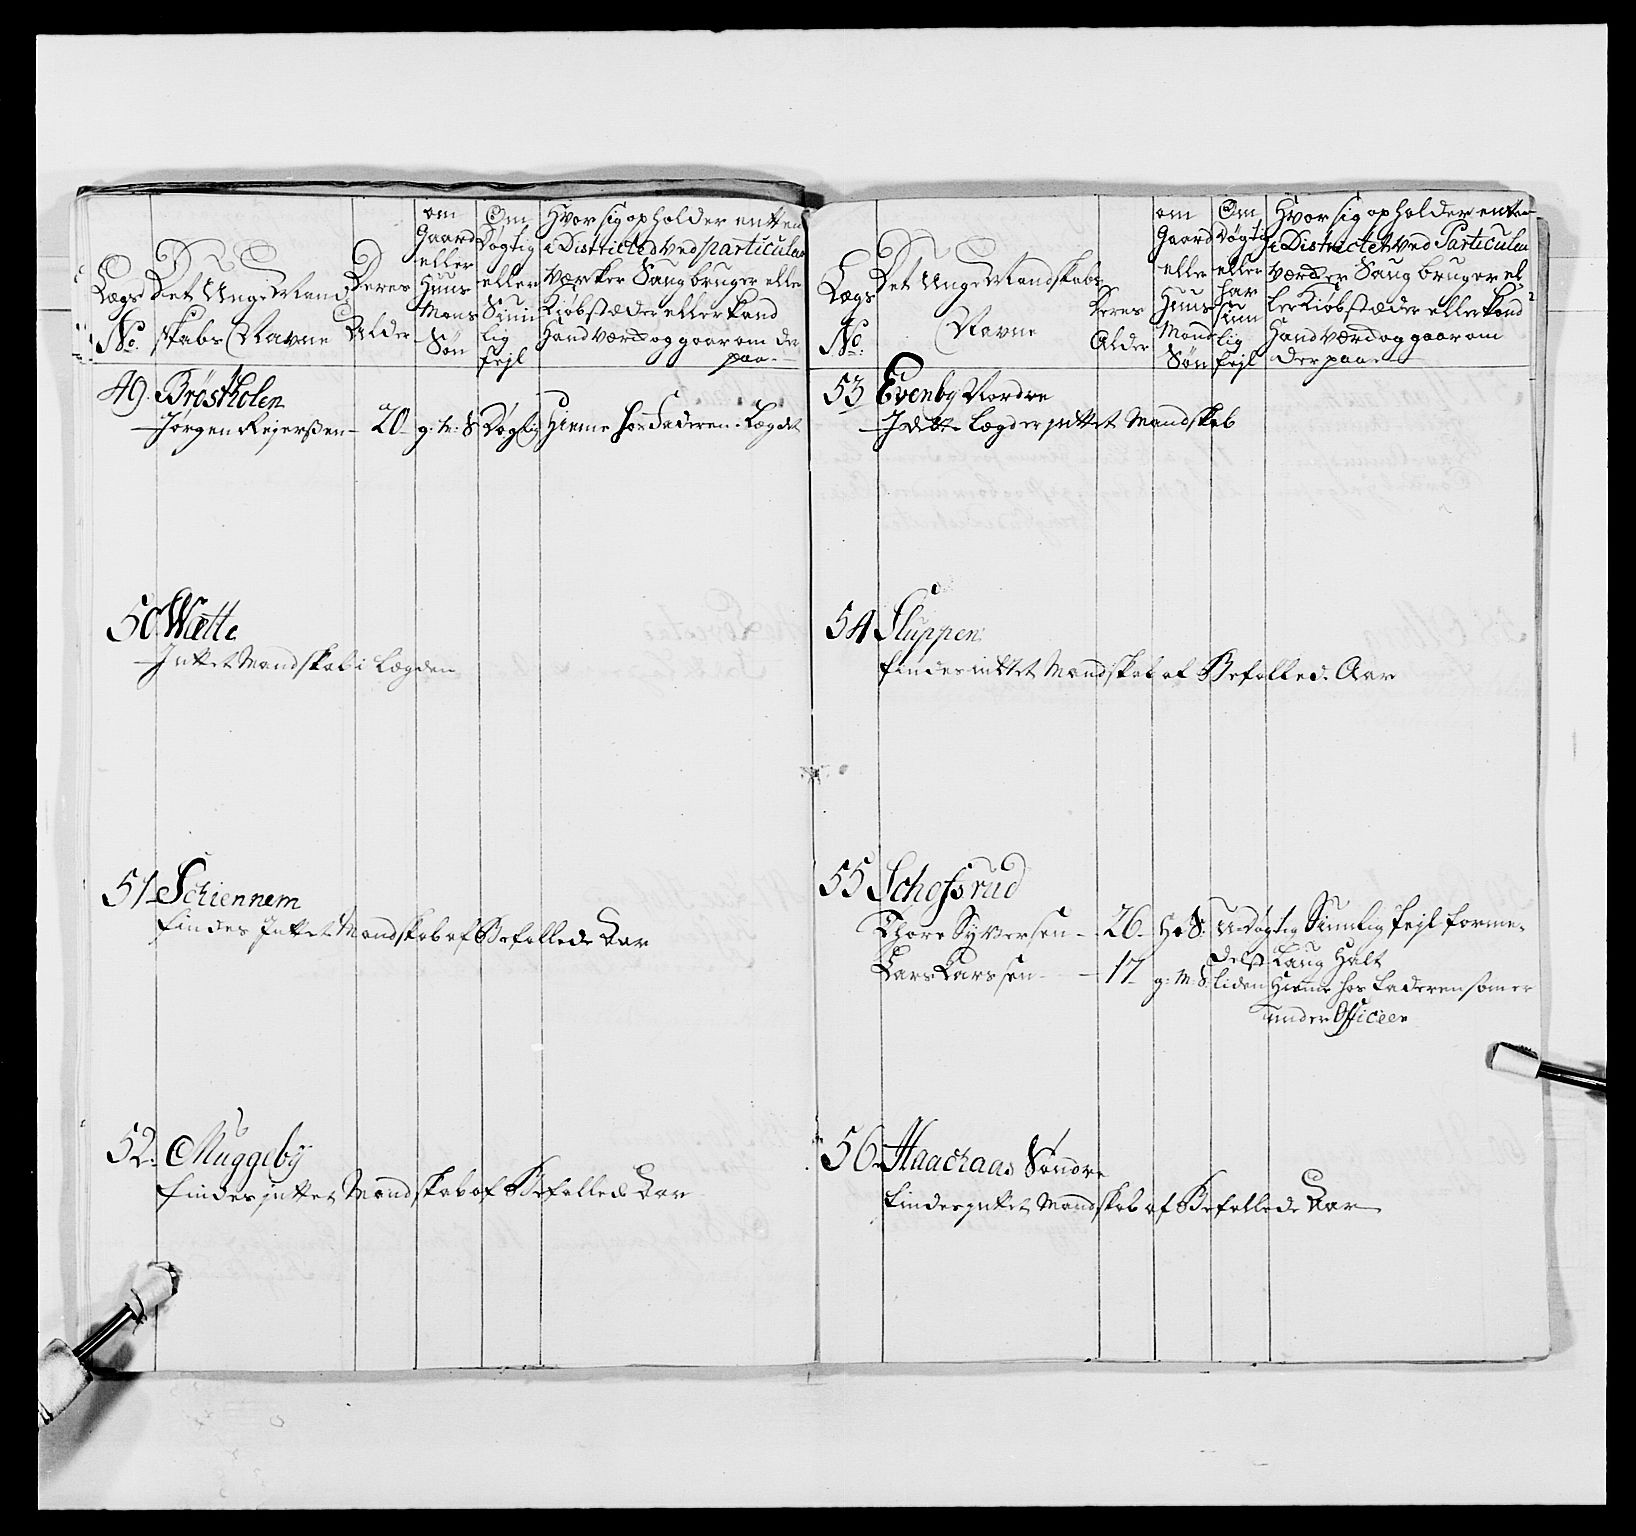 Lægs No.
Det Unge Mandskabs Navne
Deres Alder
om Gaard eller Huus Mans Søn
Om Døgtig eller Siunlig feyl
Hvor sig opholder enten
i Districted ved particulær
Værker Saugbruger eller
Kiøbstæder eller hand
Handværk og gaar om der
paa
49. Brøstholen
Jørgen Rejerssen 20 g: M: S Døgtig Hieme hos Faderen i Lægdet
50 Wætte
Intet Mandskab i Lægden
51 Schiennem
Findes Intet Mandskab af Befallede Aar
52. Muggeby
Findes intet Mandskab af Befallede Aar
Lægs No.
Det Unge Mandskabs Navne
Deres Alder
om Gaard eller Huus Mans Søn
Om Døgtig eller har siunlig feyl
Hvor sig opholder enten
i Districtet ved Particulær
Værker Saugbruger el
ler Kiøbstæder eller hand
Handværk og gaar om
der paa
53 Evenby Nordre
I dette Lægd er intet Mandskab
54 Sluppen
findes intet Mandskab af Befallede Aar
55 Schofsrud
Thore Syversen 26 H: S: U-døgtig Siunlig feyl forme-
delst Laug Halt
Lars Larssen 17 g: M: S: liden Hieme hos Faderen som er
under Officeer
56 Haachaas Søndre
Findes intet Mandskab af Befallede Aar